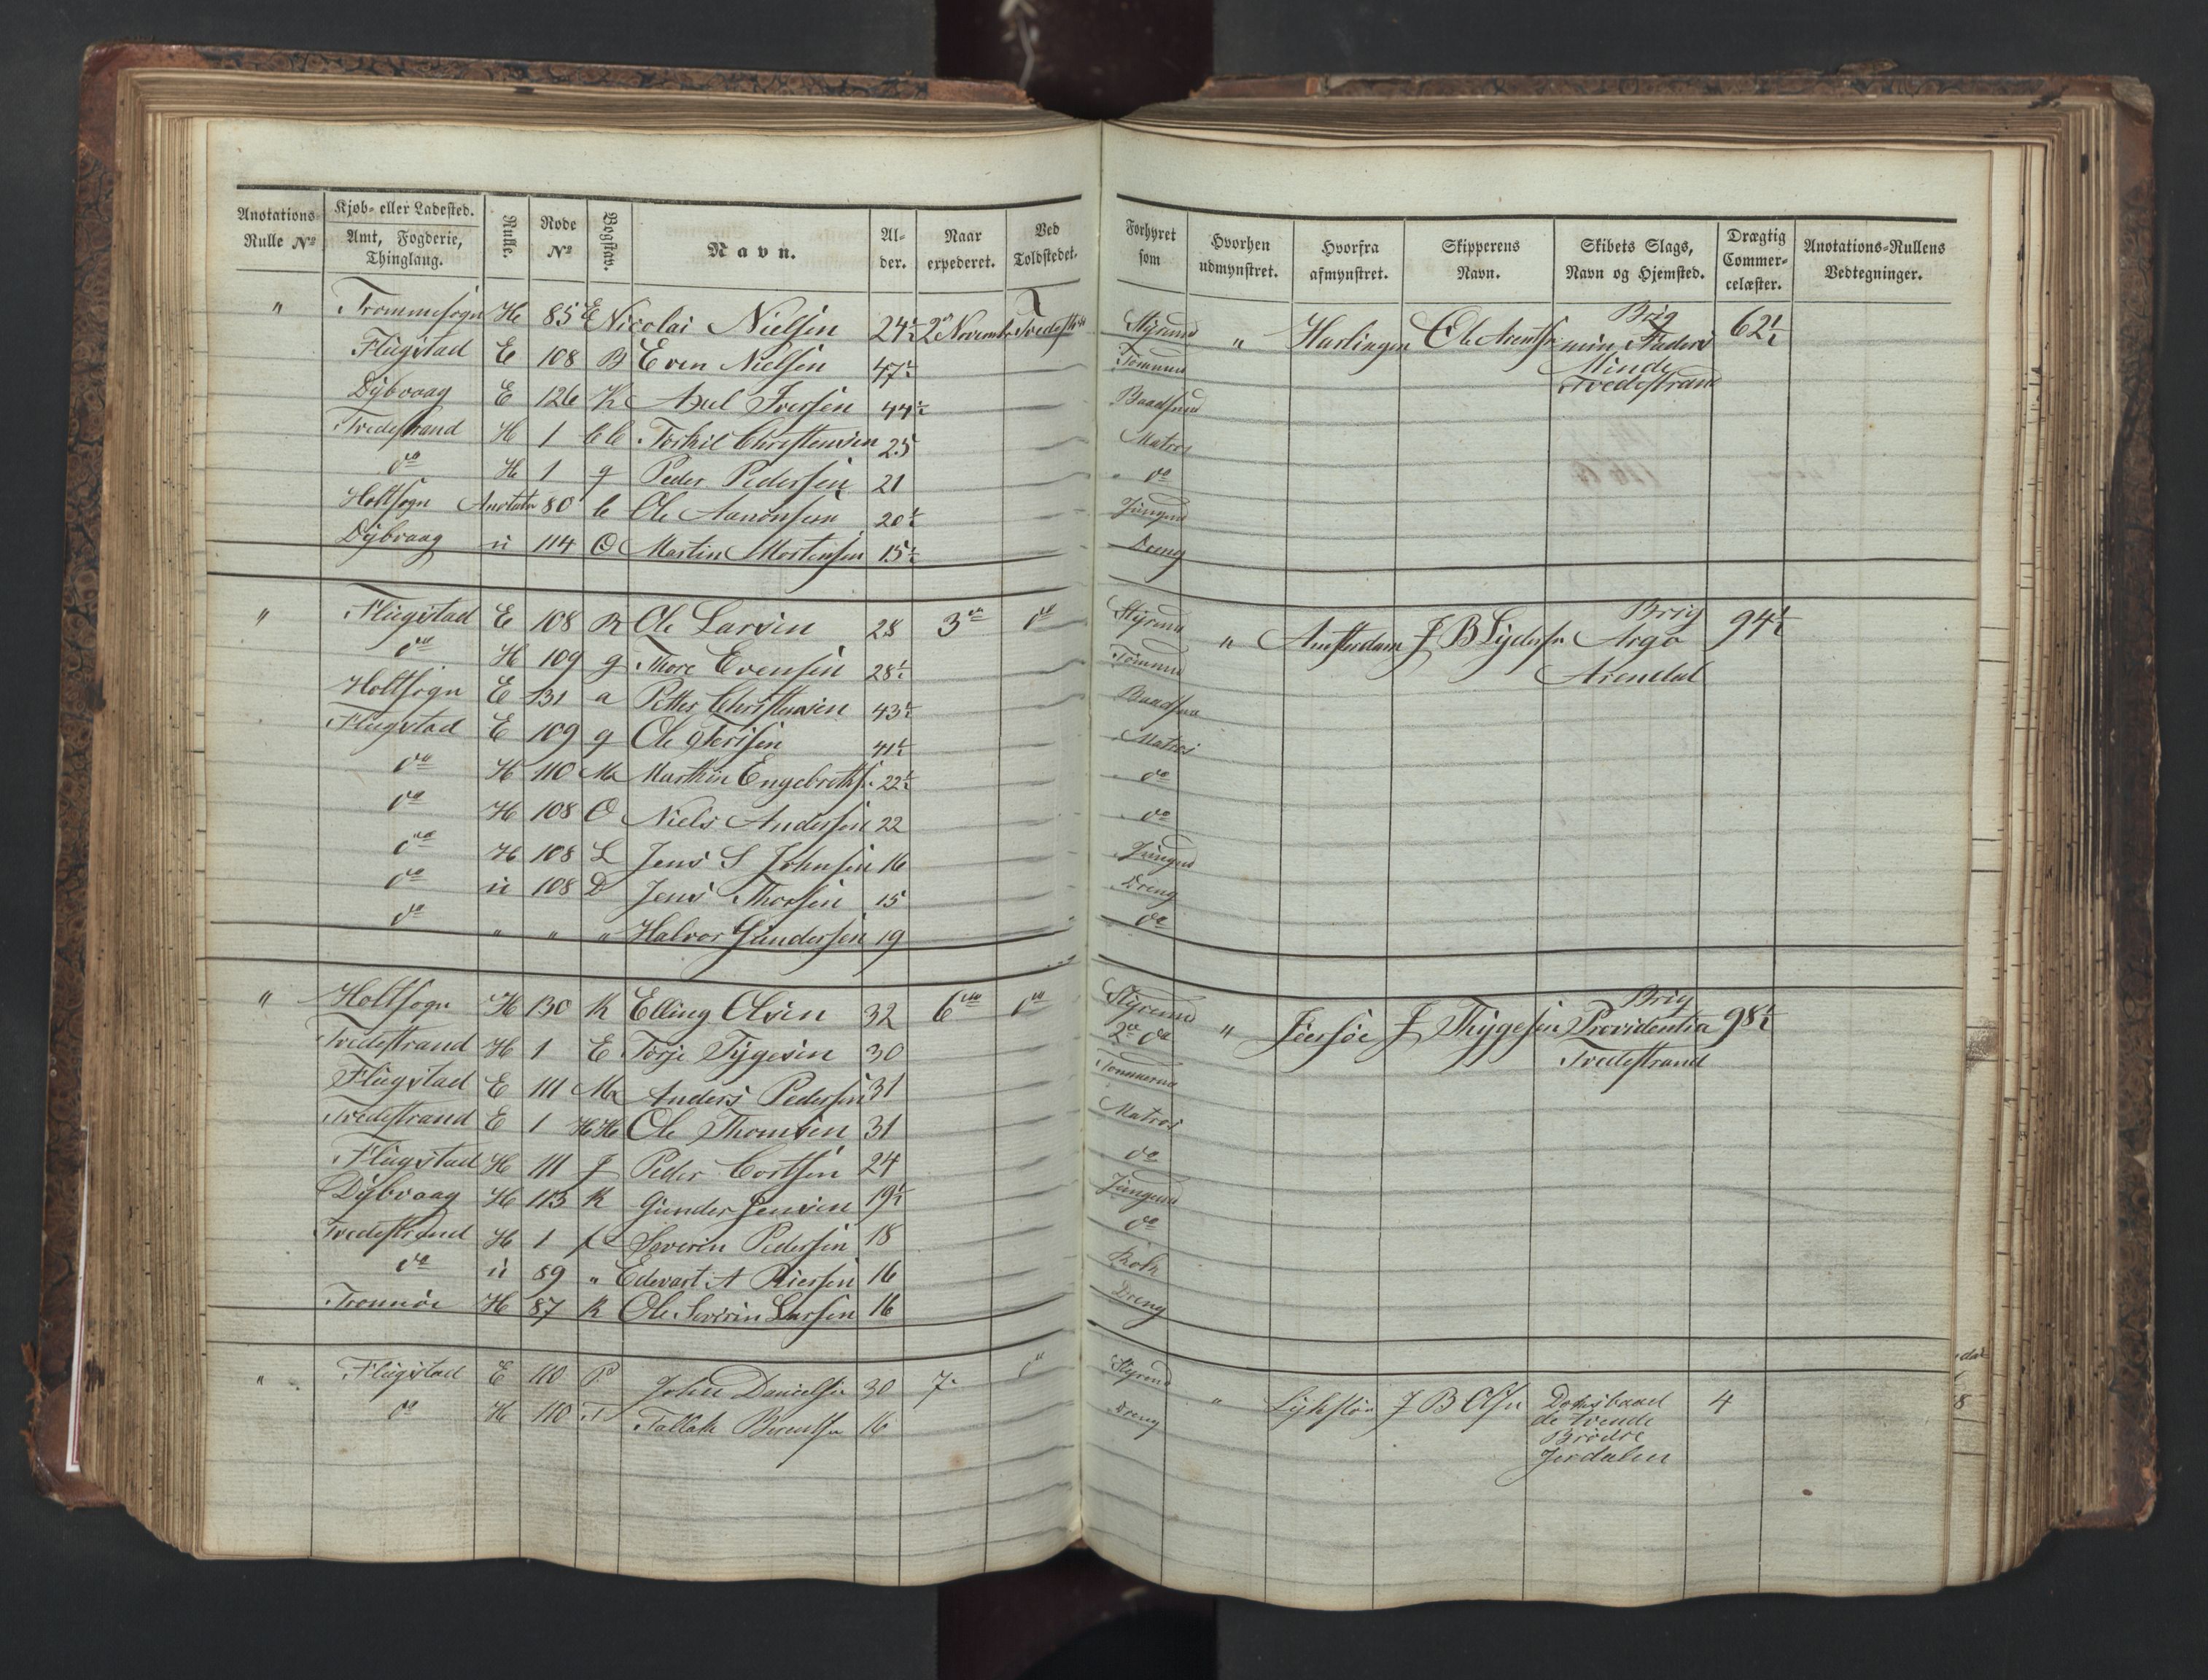 Anotations Rulle No | Kjøb- eller Ladested. Amt, Fogderie, Thinglaug. | Rulle. | Rode No | Bogstav. | Navn. | Alder. | Naar expederet. | Ved Toldstedet. | Forhyret som | Hvorhen udmynstret. | Hvorfra afmynstret. | Skipperens Navn. | Skibets Slags, Navn og Hjemsted. | Drægtig Commercelæster. | Anotations-Rullens Vedtegninger.
" Trommesogn H 85 E Nicolai Nielsen 24½ 2 Novemb Tvedest Styrmd " Harlingen Ole Arentsn Brig min Faders Minde Tvedestrand 62½
Flugstad E 108 B Even Nielsen 47½ Tømmd
Dybvaag E 126 K Axel Iversen 44½ Baadsmd
Tvedestrand H 1 CC Torkil Christensen 25 Matros
do H 1 g Peder Pedersen 21 do
Holtsogn Anotatn 80 C Ole Aanonsen 20½ Jungmd
Dybvaag u 114 O Martin Mortensen 15½ Dreng
" Flugstad E 108 R Ole Larsen 28 3de do Styrmd " Amsterdam J B Lydersn Brig Argo Arendal 94½
do H 109 g Thore Evensen 28½ Tømmd
Holtsogn E 131 a Petter Christensen 43½ Baadsm
Flugstad E 109 g Ole Gjersen 41½ Matros
do H 110 M Marthin Engebreths. 22½ do
do H 108 O Niels Andersen 22 do
do H 108 L Jens S Johnsen 16 Jungmd
do u 108 D Jens Thorsen 15 Dreng
do " " " Halvor Gundersen 19 do
" Holtsogn H 130 K Elling Olsen 32 6te do Styrmd " J Thygesen Brig Providentia Tvedestrand 98½
Tvedestrand H 1 E Torje Tygesen 30 2 do
Flugstad E 111 M Anders Pedersen 31 Tømmermd
Tvedestrand E 1 HH Ole Thomsen 31 Matros
Flugstad H 111 J Peder Cortsen 24 do
Dybvaag H 113 K Gunder Jensen 19½ Jungmd
Tvedestrand H 1 Severin Pedersen 18 do
do u 89 " Edevart A Riersen 16 Kok
Tromøe H 87 K Ole Severin Larsen 16 Dreng
" Flugstad E 110 P John Danielsen 30 7. do Styrmd " J B Olsn Døksbaad de tvende Brødre 4
do H 110 T Tallak Berentsn 16 Dreng